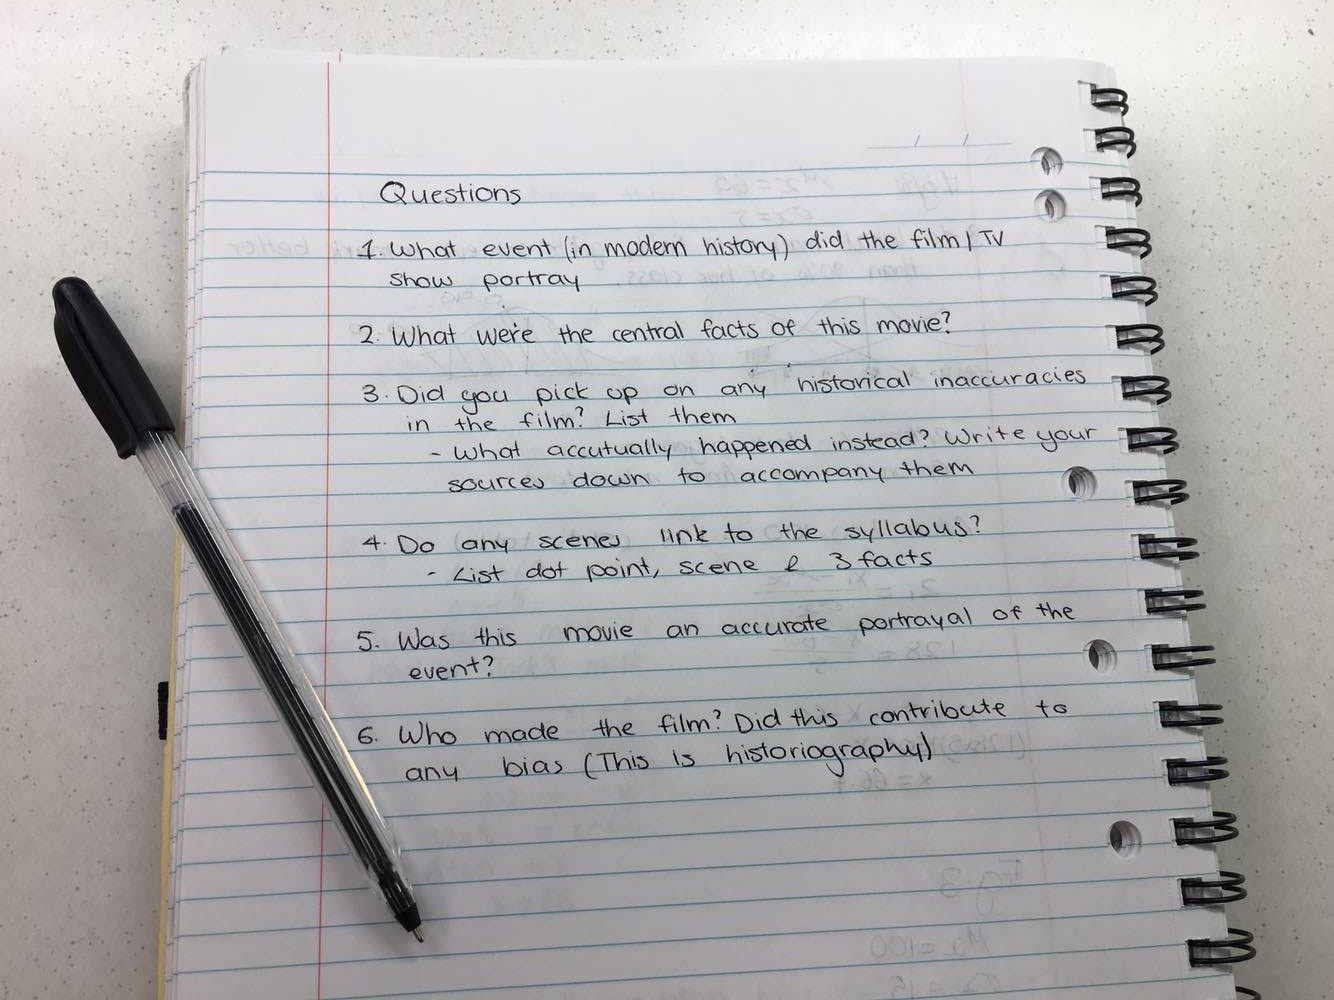 Questions
1. What event (in modern history) did the film / TV
show portray
2. What were the central facts of this movie?
3. Did you pick up on any historical inaccuracies
in the film? List them
- What accutually happened instead? Write your
sources down to accompany them
4. Do any scenes link to the syllabus?
- List dot point, scene & 3 facts
5. Was this movie an accurate portrayal of the
event?
6. Who made the film? Did this contribute to
any bias (This is historiography)